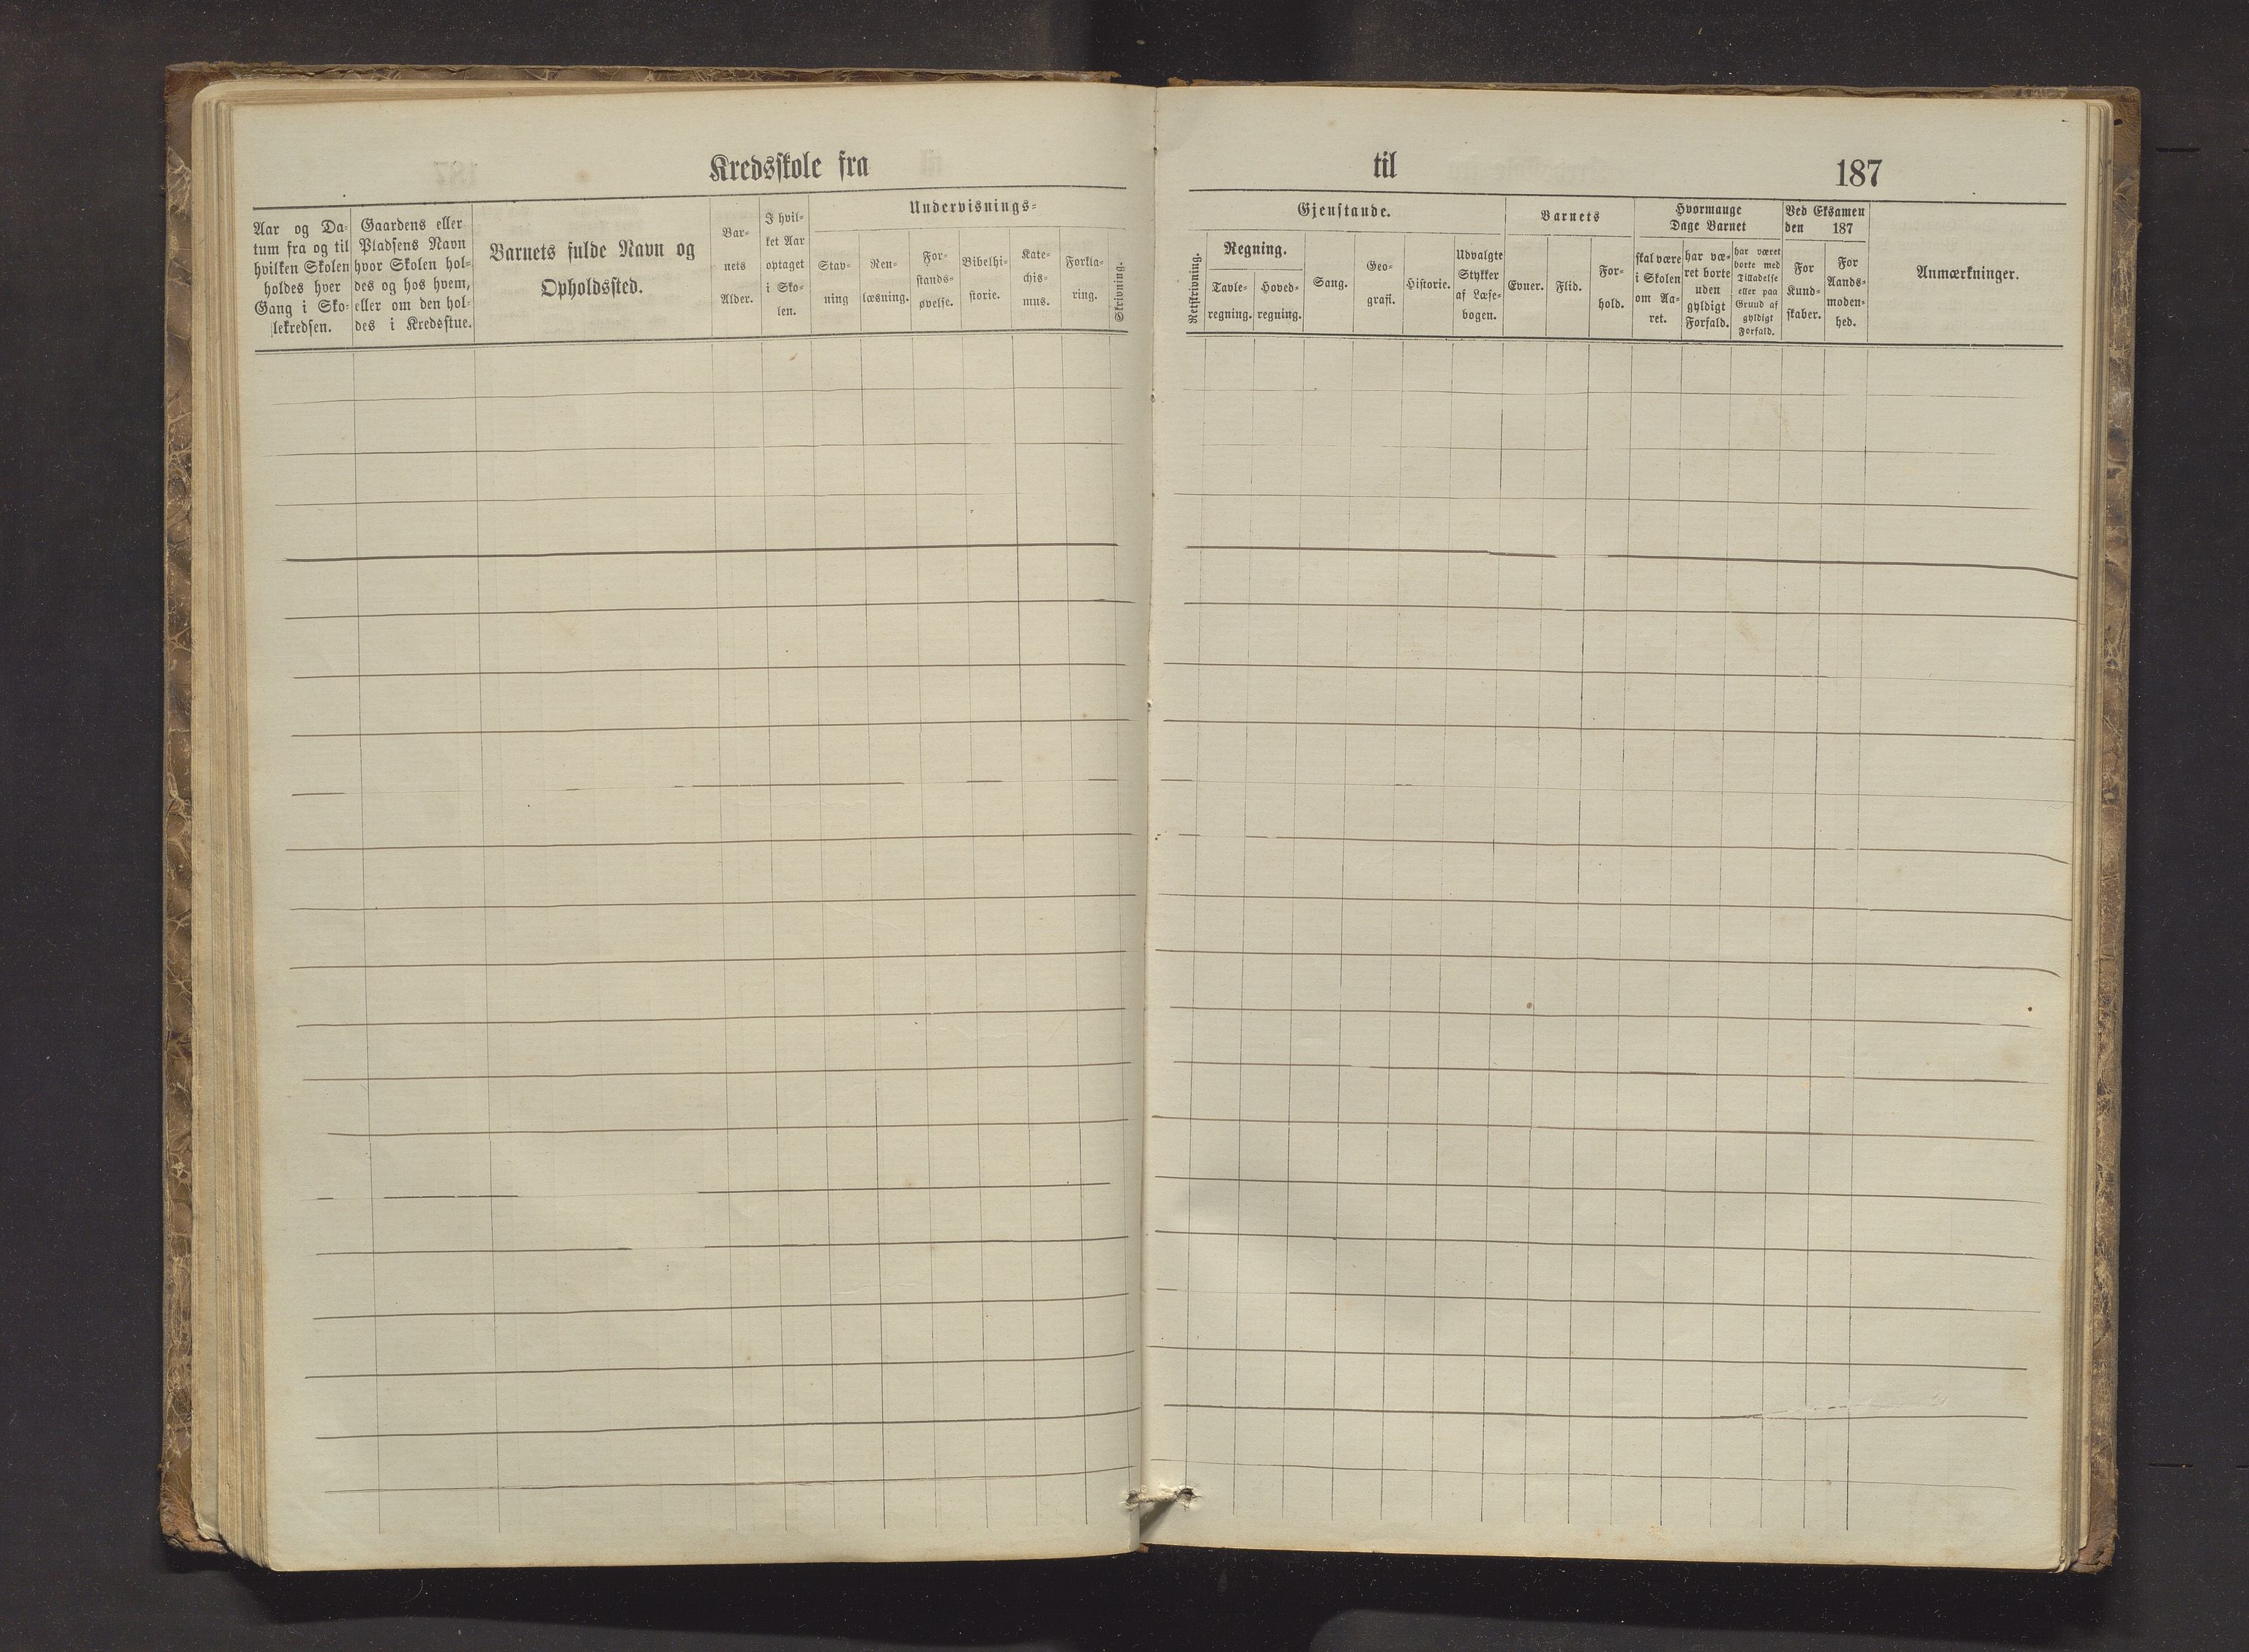 Kredsskole fra
til
187
Aar og Da-
tum fra og til
hvilken Skolen
holdes hver
Gang i Sko-
lekredsen.
Gaardens eller
Pladsens Navn
hvor Skolen hol-
des og hos hvem,
eller om den hol-
des i Kredsstue.
Barnets fulde Navn og
Opholdssted.
Bar-
nets
Alder.
I hvil-
ket Aar
optaget
i Sko-
len.
Undervisnings-
Stav-
ning
Ren-
læsning.
For-
stands-
øvelse.
Bibelhi-
storie.
Kate-
chis-
mus.
Forkla-
ring.
Skrivning.
Gjenstande.
Retskrivning.
Regning.
Tavle-
regning.
Hoved-
regning.
Sang.
Geo-
grafi.
Historie.
Udvalgte
Stykker
af Læse-
bogen.
Barnets
Evner.
Flid.
For-
hold.
Hvormange
Dage Barnet
skal være
i Skolen
om Aa-
ret.
har væ-
ret borte
uden
gyldigt
Forfald.
har været
borte med
Tilladelse
eller paa
Grund af
gyldigt
Forfald.
Ved Eksamen
den 187
For
Kund-
skaber.
For
Aands-
moden-
hed.
Anmærkninger.